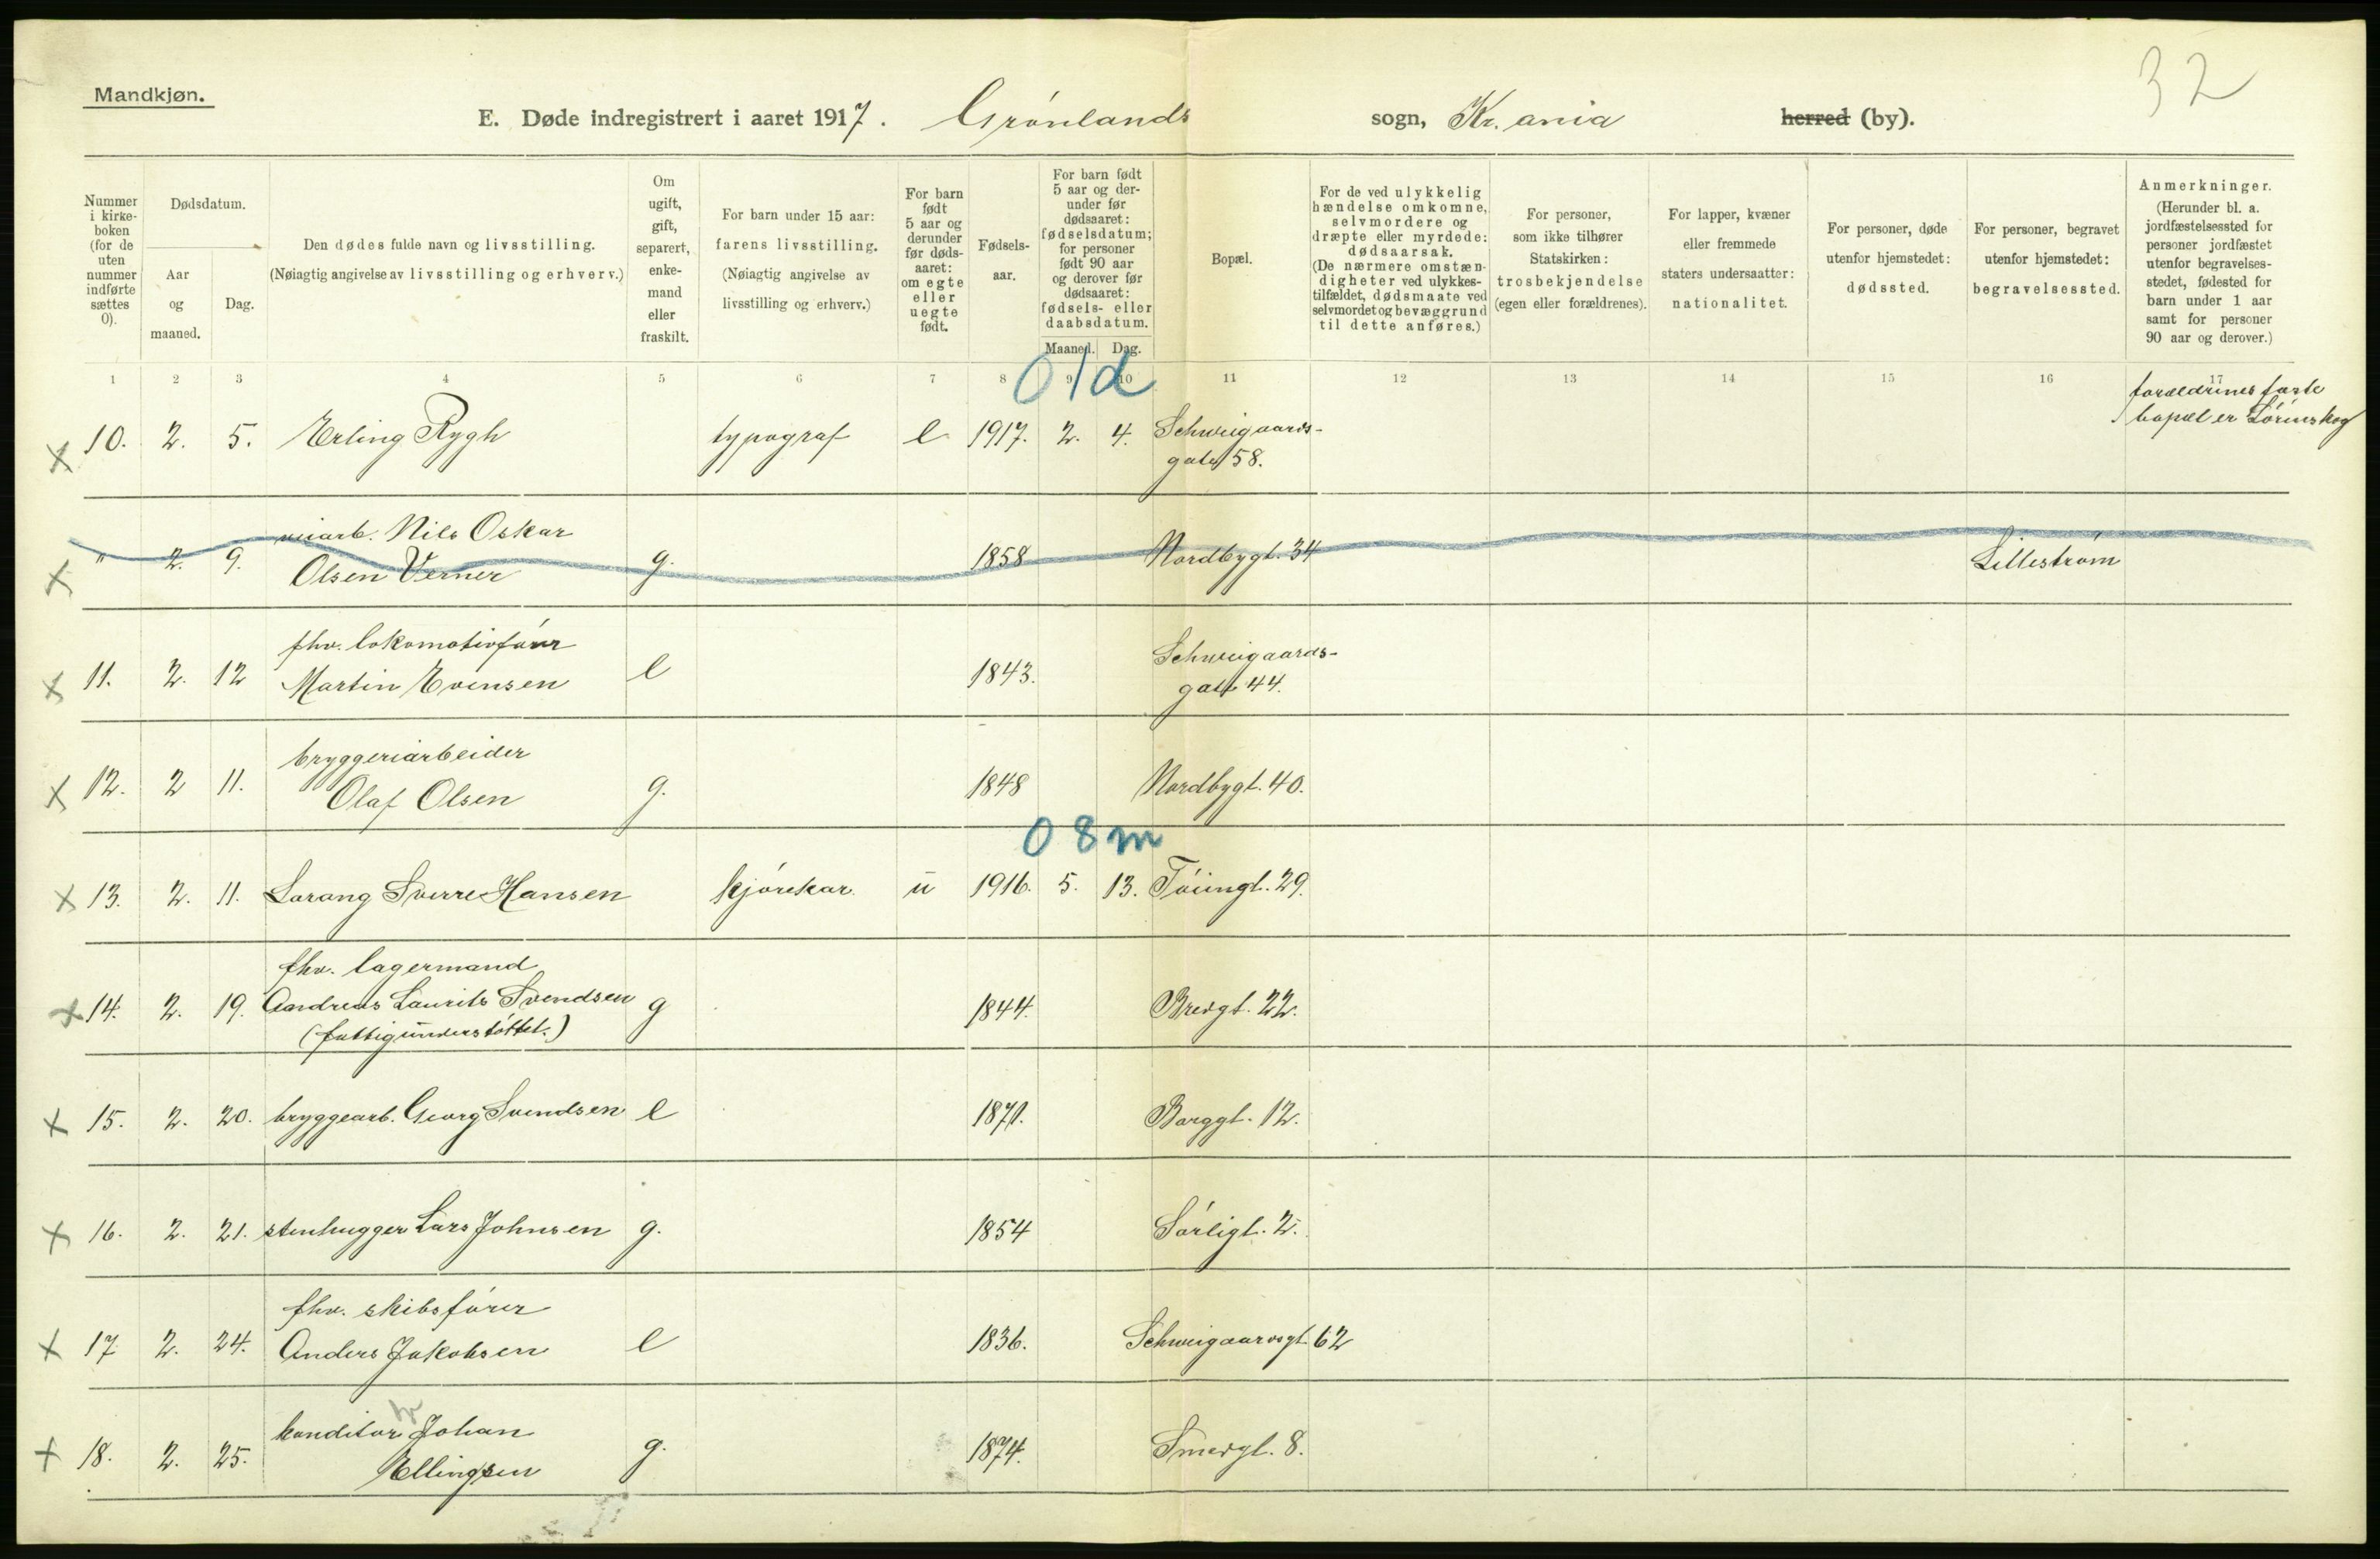 32
Mandkjøn.
E. Døde indregistrert i aaret 1917. Grønlands sogn, Kr.ania herred (by).
Nummer i kirke- boken (for de uten nummer indførte sættes 0).
Dødsdatum.
Aar og maaned.
Dag.
Den dødes fulde navn og livsstilling.
(Nøiagtig angivelse av livsstilling og erhverv.)
Om ugift, gift, separert, enke- mand eller fraskilt.
For barn under 15 aar: farens livsstilling.
(Nøiagtig angivelse av livsstilling og erhverv.)
For barn født 5 aar og derunder før døds- aaret: om egte eller uegte født.
Fødsels- aar.
For barn født 5 aar og der- under før dødsaaret: fødselsdatum; for personer født 90 aar og derover før dødsaaret: fødsels- eller daabsdatum.
Maaned. Dag.
Bopæl.
For de ved ulykkelig hændelse omkomne, selvmordere og dræpte eller myrdede: dødsaarsak.
(De nærmere omstæn- digheter ved ulykkes- tilfældet, dødsmaate ved selvmordet og bevæggrund til dette anføres.)
For personer, som ikke tilhører Statskirken: trosbekjendelse (egen eller forældrenes).
For lapper, kvæner eller fremmede staters undersaatter: nationalitet.
For personer, døde utenfor hjemstedet: dødssted.
For personer, begravet utenfor hjemstedet: begravelsessted.
Anmerkninger.
(Herunder bl. a. jordfæstelsessted for personer jordfæstet utenfor begravelses- stedet, fødested for barn under 1 aar samt for personer 90 aar og derover.)
1 2 3 4 5 6 7 8 9 10 11 12 13 14 15 16 17
0 1d
x 10. 2. 5. Erling Rygh typograf e 1917. 2. 4. Schweigaards-
gate 58.
forældrenes faste
bopæl er Lørenskog
x " 2. 9. veiarb. Nils Oskar
Olsen Verner g. 1858 Nordbygt. 34 Lillestrøm
x 11. 2. 12 fhv. lokomotivfører
Martin Evensen e 1843. Schweigaards-
gate 44.
x 12. 2 11. bryggeriarbeider
Olaf Olsen g. 1848 Nordbygt. 40.
0 8 m
x 13. 2. 11. Lorang Sverre Hansen kjørekar u 1916. 5. 13. Tøiengt. 29.
x 14. 2. 19. fhv. lagermand
Andreas Laurits Svendsen g 1844. Bredgt. 22.
(fattigunderstøttet.)
x 15. 2. 20. bryggearb. Georg Svendsen e 1871. Borggt. 12.
x 16. 2. 21. stenhugger Lars Johnsen g. 1854 Sørligt. 2.
x 17 2. 24. fhv. skibsfører
Anders Jakobsen e 1836. Schweigaardsgt. 62
x 18. 2. 25. konditor Johan
Ellingsen g. 1874. Smedgt. 8.